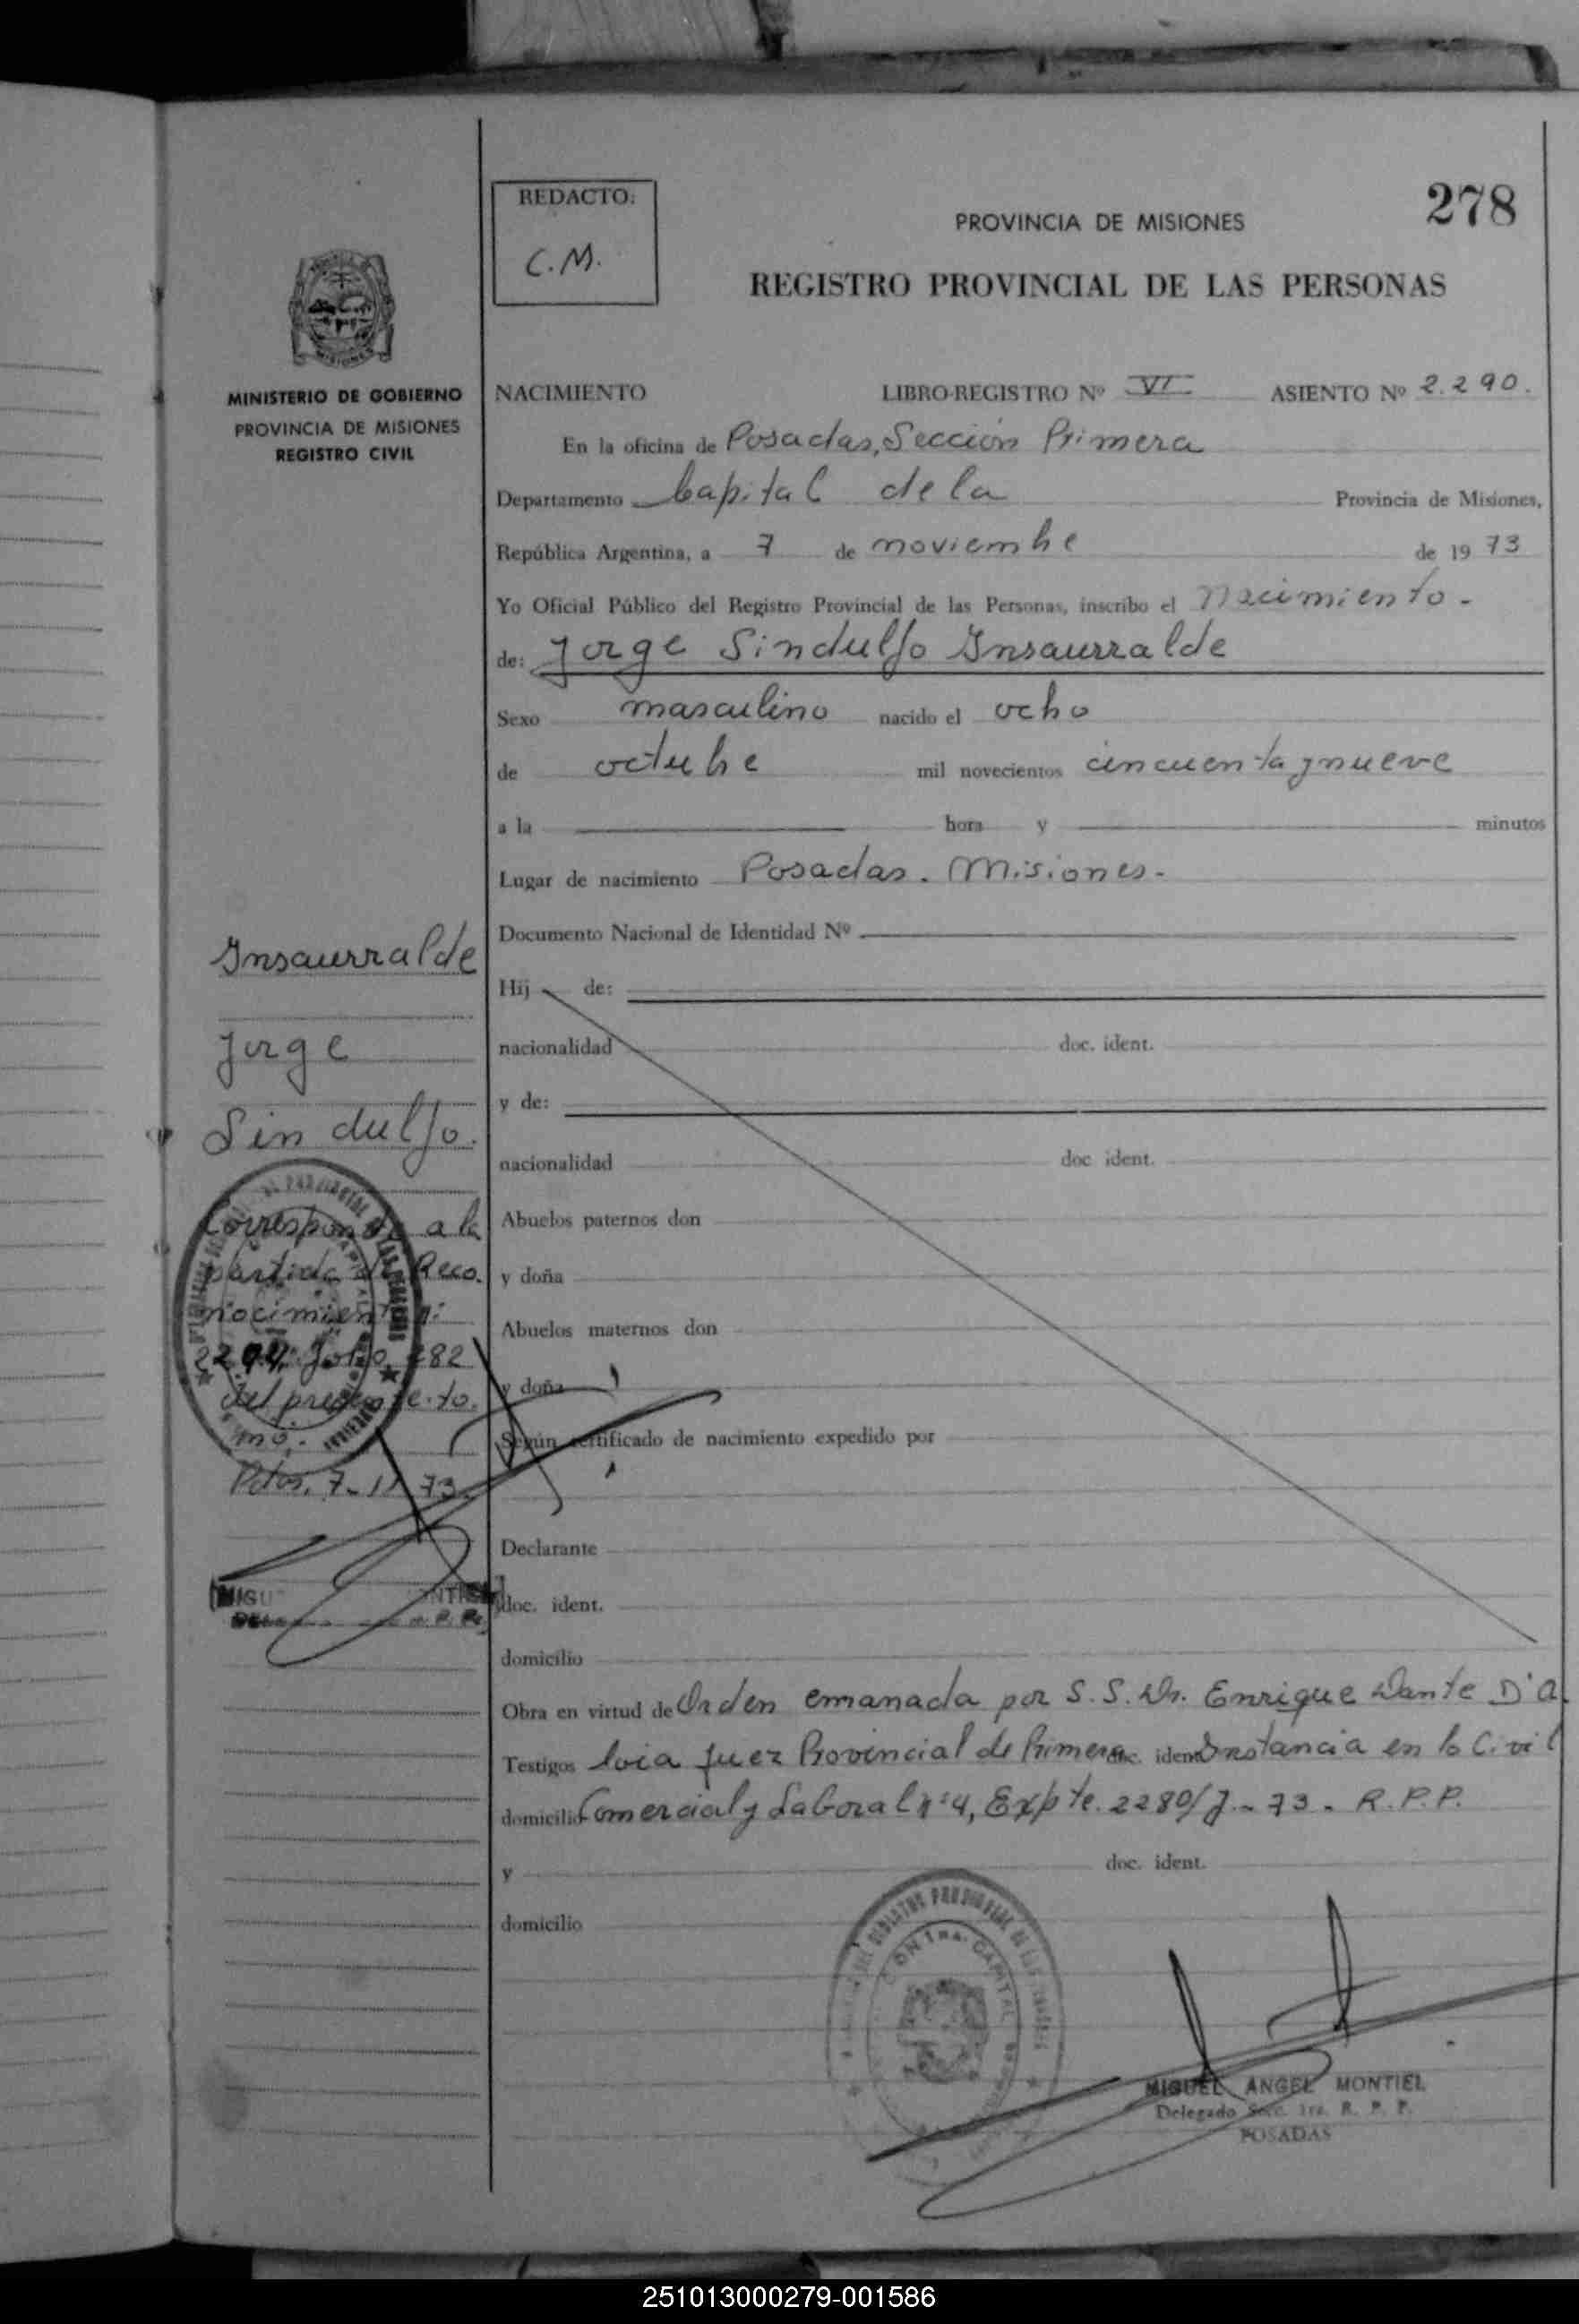 278
REDACTO:
C.M.
PROVINCIA DE MISIONES
REGISTRO PROVINCIAL DE LAS PERSONAS
MINISTERIO DE GOBIERNO
PROVINCIA DE MISIONES
REGISTRO CIVIL
NACIMIENTO LIBRO-REGISTRO Nº VI ASIENTO Nº 2.290.
En la oficina de Posadas, Sección Primera
Departamento Capital de la Provincia de Misiones,
República Argentina, a 7 de noviembre de 1973
Yo Oficial Público del Registro Provincial de las Personas, inscribo el Nacimiento-
de: Jorge Sindulfo Insaurralde
Sexo masculino nacido el ocho
de octubre mil novecientos cincuenta y nueve
a la hora y minutos
Lugar de nacimiento Posadas. Misiones-
Documento Nacional de Identidad Nº
Hij de:
nacionalidad doc. ident.
y de:
nacionalidad doc ident.
Abuelos paternos don
y doña
Abuelos maternos don
y doña
Según certificado de nacimiento expedido por
Declarante
doc. ident.
domicilio
Obra en virtud de Orden emanada por S.S. Dr. Enrique Dante D'A
Testigos loia Juez Provincial de Primera doc. ident Instancia en lo Civil
domicilio Comercial y Laboral nº 4, Expte. 2280/J-73. R.P.P.
y doc. ident.
domicilio
Insaurralde
Jorge
Sindulfo.
Corresponde a la
partida de Reco.
nocimiento n:
folio 282
del presente to.
mo.-
Pdas, 7-11-73.
MIGUEL ANGEL MONTIEL
Delegado Secc. 1ra. R. P. P.
POSADAS
251013000279-001586